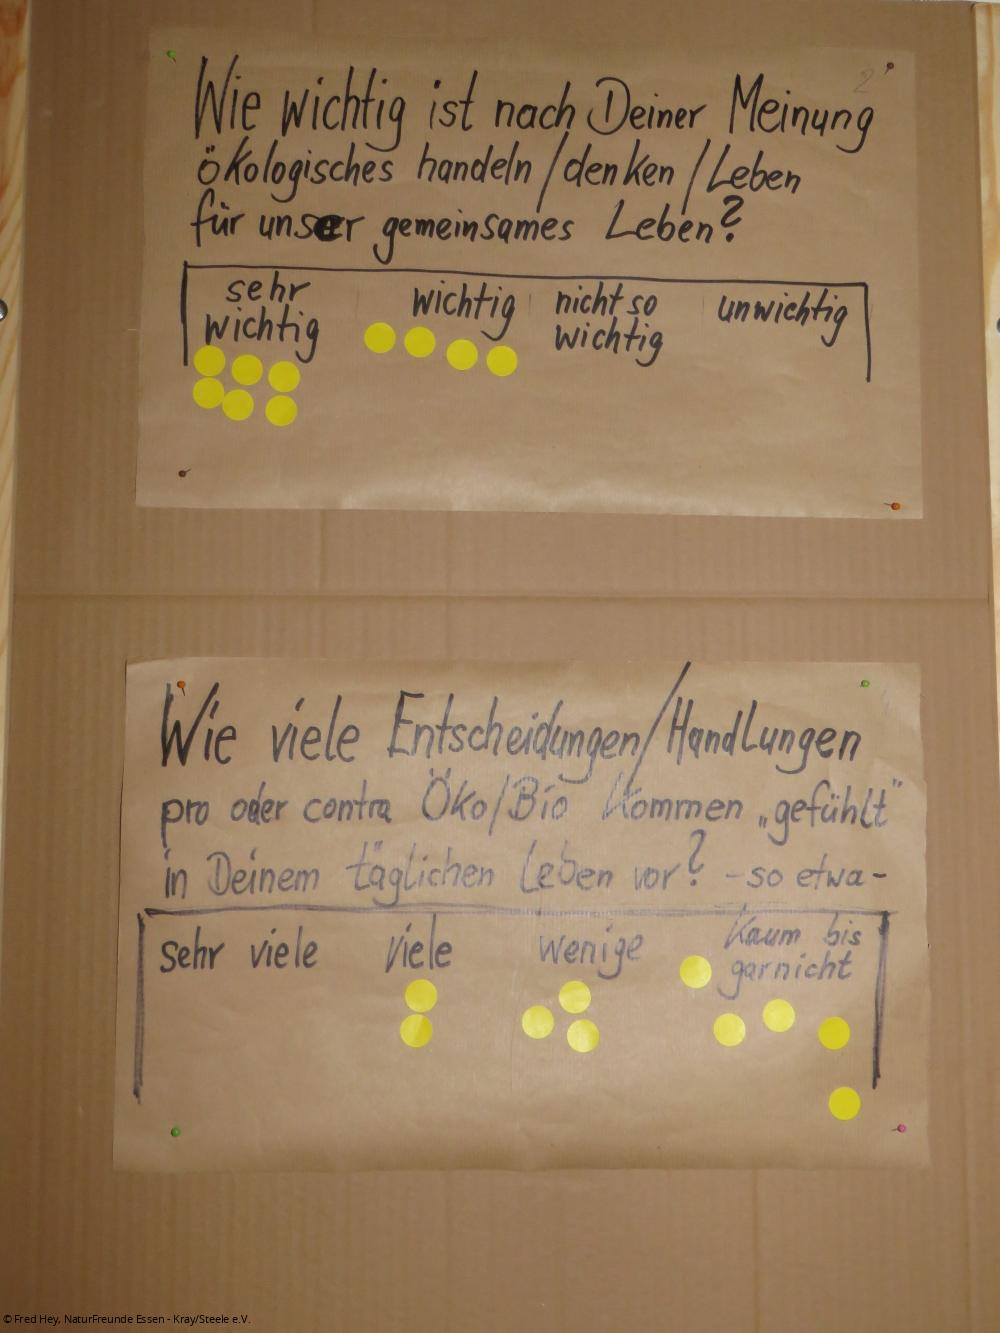 Wie wichtig ist nach Deiner Meinung
ökologisches handeln/denken/Leben
für unser gemeinsames Leben?
sehr wichtig
wichtig
nicht so wichtig
unwichtig
Wie viele Entscheidungen/Handlungen
pro oder contra Öko/Bio kommen „gefühlt"
in Deinem täglichen Leben vor? -so etwa-
sehr viele
viele
wenige
kaum bis garnicht
© Fred Hey, NaturFreunde Essen - Kray/Steele e.V.